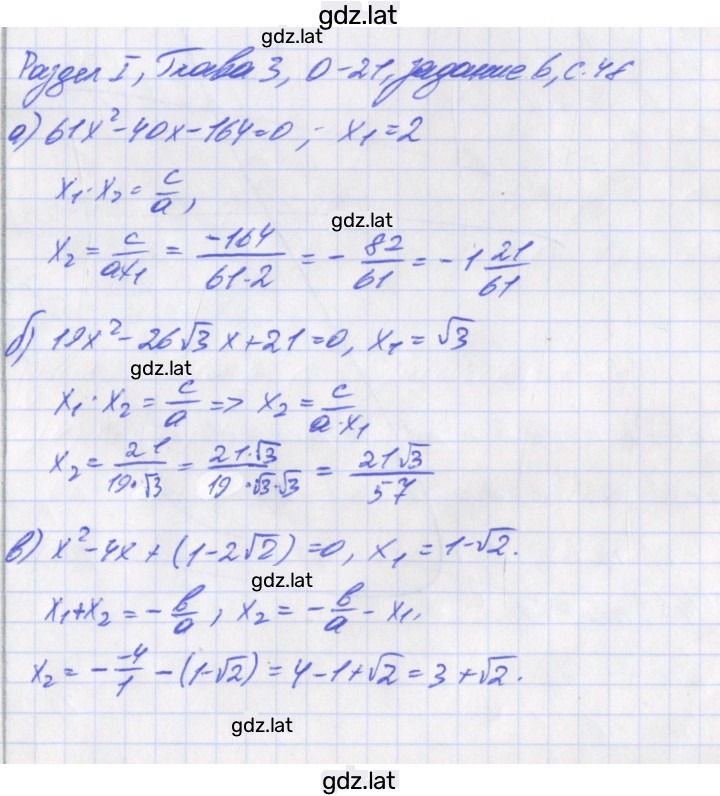 gdz.lat
gdz.lat
Раздел I, Глава 3, О-21, задание 6, с. 48
а) 61x² - 40x - 164 = 0, x₁ = 2
x₁ · x₂ = c/a,
gdz.lat
x₂ = c/ax₁ = -164/61·2 = - 82/61 = -1 21/61
б) 19x² - 26√3 x + 21 = 0, x₁ = √3
gdz.lat
x₁ · x₂ = c/a => x₂ = c/a·x₁
x₂ = 21/19·√3 = 21·√3/19·√3·√3 = 21√3/57
в) x² - 4x + (1-2√2) = 0, x₁ = 1-√2.
gdz.lat
x₁+x₂ = - b/a, x₂ = - b/a - x₁,
x₂ = - -4/1 - (1-√2) = 4-1+√2 = 3+√2.
gdz.lat
gdz.lat